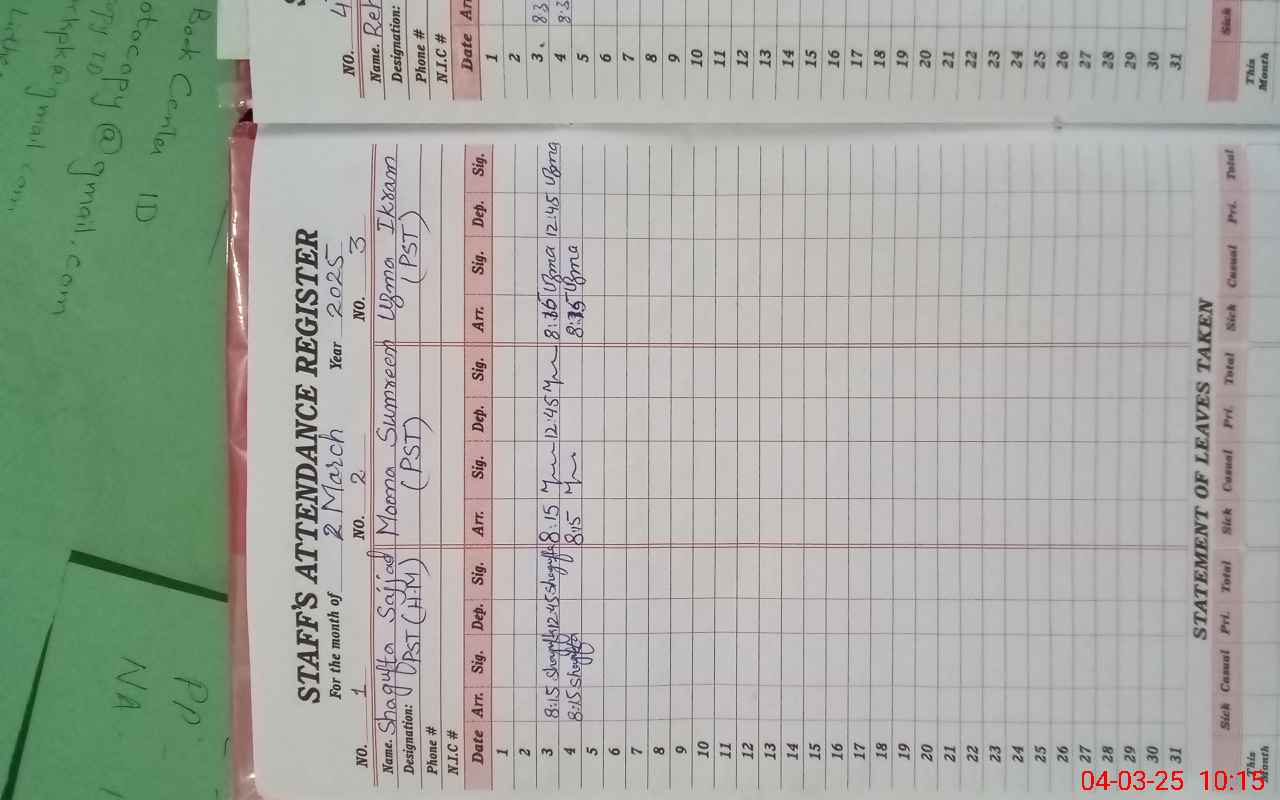 STAFF'S ATTENDANCE REGISTER
For the month of 2 March Year 2025
NO. 1 NO. 2 NO. 3
Name. Shagufta Sajjad Moona Sumreen Uzma Ikram
Designation: PST (H.M) (PST) (PST)
Phone #
N.I.C #
Date Arr. Sig. Dep. Sig. Arr. Sig. Dep. Sig. Arr. Sig. Dep. Sig.
1
2
3 8:15 Shagufta 12:45 Shagufta 8:15 12:45 8:15 Uzma 12:45 Uzma
4 8:15 Shagufta 8:15 8:15 Uzma
5
6
7
8
9
10
11
12
13
14
15
16
17
18
19
20
21
22
23
24
25
26
27
28
29
30
31
STATEMENT OF LEAVES TAKEN
Sick Casual Pri. Total Sick Casual Pri. Total Sick Casual Pri. Total
This Month
NO. 4
Name. Reh
Designation:
Phone #
N.I.C #
Date Ar
1
2
3 83
4 8:3
5
6
7
8
9
10
11
12
13
14
15
16
17
18
19
20
21
22
23
24
25
26
27
28
29
30
31
Sick
This Month
Book Center ID
otocopy @ gmail.com
gmail.com
PP
NA
04-03-25 10:15